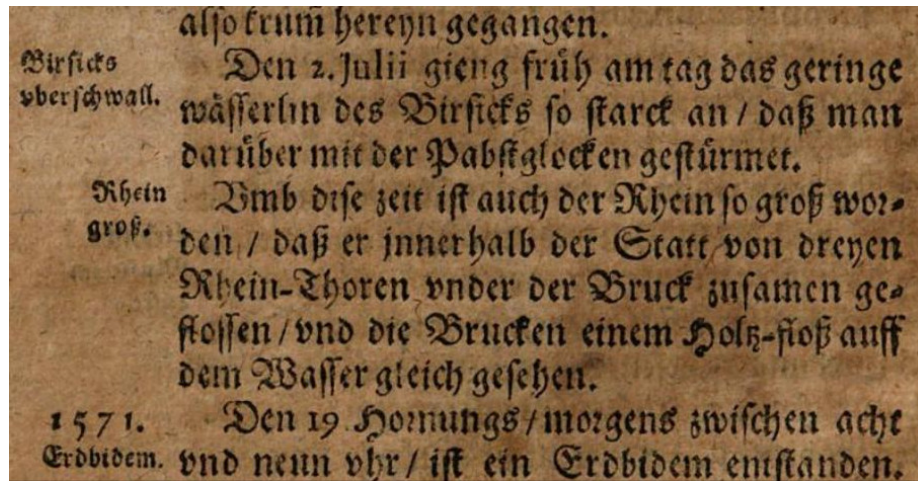 also krum̃ hereyn gegangen.
Birsicks
vberschwall.
Den 2. Julii gieng früh am tag das geringe
wässerlin des Birsicks so starck an / daß man
darüber mit der Pabstglocken gestürmet.
Rhein
groß.
Vmb dise zeit ist auch der Rhein so groß wor-
den / daß er jnnerhalb der Statt von dreyen
Rhein-Thoren vnder der Bruck zusamen ge-
flossen / vnd die Brucken einem Holtz-floß auff
dem Wasser gleich gesehen.
1571.
Erdbidem.
Den 19 Hornungs / morgens zwischen acht
vnd neun vhr / ist ein Erdbidem entstanden.